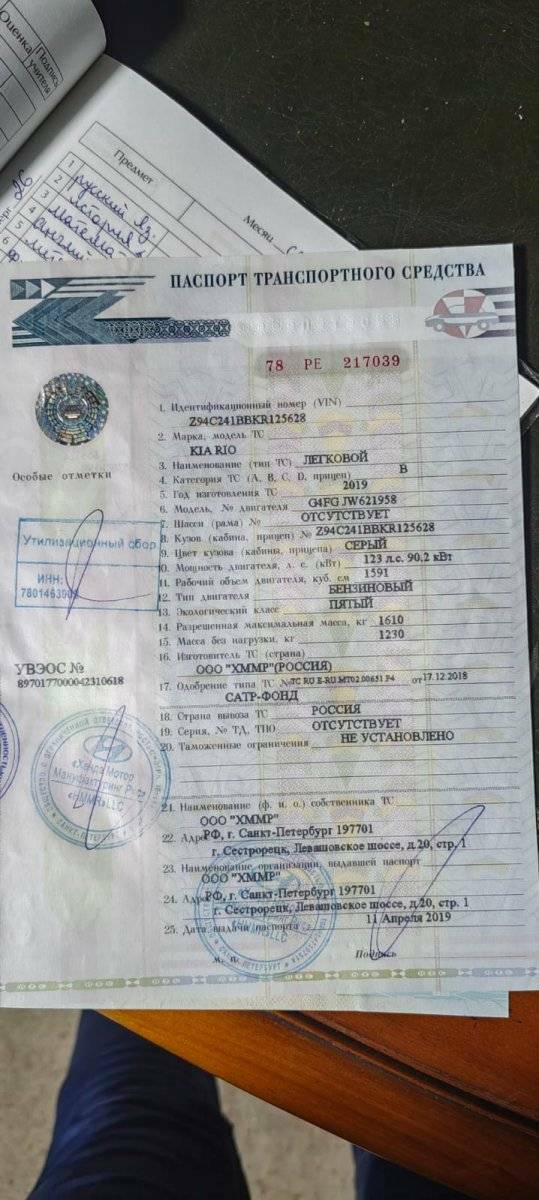 Оценка
Подпись
учителя
Предмет
Месяц
1 русский яз.
2 история
3 математ
4 англий
5
6
26
ПАСПОРТ ТРАНСПОРТНОГО СРЕДСТВА
78 РЕ 217039
1. Идентификационный номер (VIN)
Z94C241BBKR125628
2. Марка, модель ТС
KIA RIO
3. Наименование (тип ТС) ЛЕГКОВОЙ
4. Категория ТС (А, В, С, D, прицеп) B
5. Год изготовления ТС 2019
6. Модель, № двигателя G4FG JW621958
7. Шасси (рама) № ОТСУТСТВУЕТ
8. Кузов (кабина, прицеп) № Z94C241BBKR125628
9. Цвет кузова (кабины, прицепа) СЕРЫЙ
10. Мощность двигателя, л. с. (кВт) 123 л.с. 90,2 кВт
11. Рабочий объем двигателя, куб. см 1591
12. Тип двигателя БЕНЗИНОВЫЙ
13. Экологический класс ПЯТЫЙ
14. Разрешенная максимальная масса, кг 1610
15. Масса без нагрузки, кг 1230
16. Изготовитель ТС (страна)
ООО "ХММР"(РОССИЯ)
17. Одобрение типа ТС № ТС RU E-RU.MT02.00651.P4 от 17.12.2018
САТР-ФОНД
18. Страна вывоза ТС РОССИЯ
19. Серия, № ТД, ТПО ОТСУТСТВУЕТ
20. Таможенные ограничения НЕ УСТАНОВЛЕНО
21. Наименование (ф. и. о.) собственника ТС
ООО "ХММР"
22. Адрес РФ, г. Санкт-Петербург 197701
г. Сестрорецк, Левашовское шоссе, д.20, стр. 1
23. Наименование организации, выдавшей паспорт
ООО "ХММР"
24. Адрес РФ, г. Санкт-Петербург 197701
г. Сестрорецк, Левашовское шоссе, д.20, стр. 1
25. Дата выдачи паспорта 11 Апреля 2019
М. П. Подпись
Особые отметки
Утилизационный сбор
ИНН:
УВЭОС №
897017700004231​0618
«Хендэ Мотор
Мануфактуринг Рус»
«HMMR» LLC
САНКТ-ПЕТЕРБУРГ
«HMMR» LLC
САНКТ-ПЕТЕРБУРГ